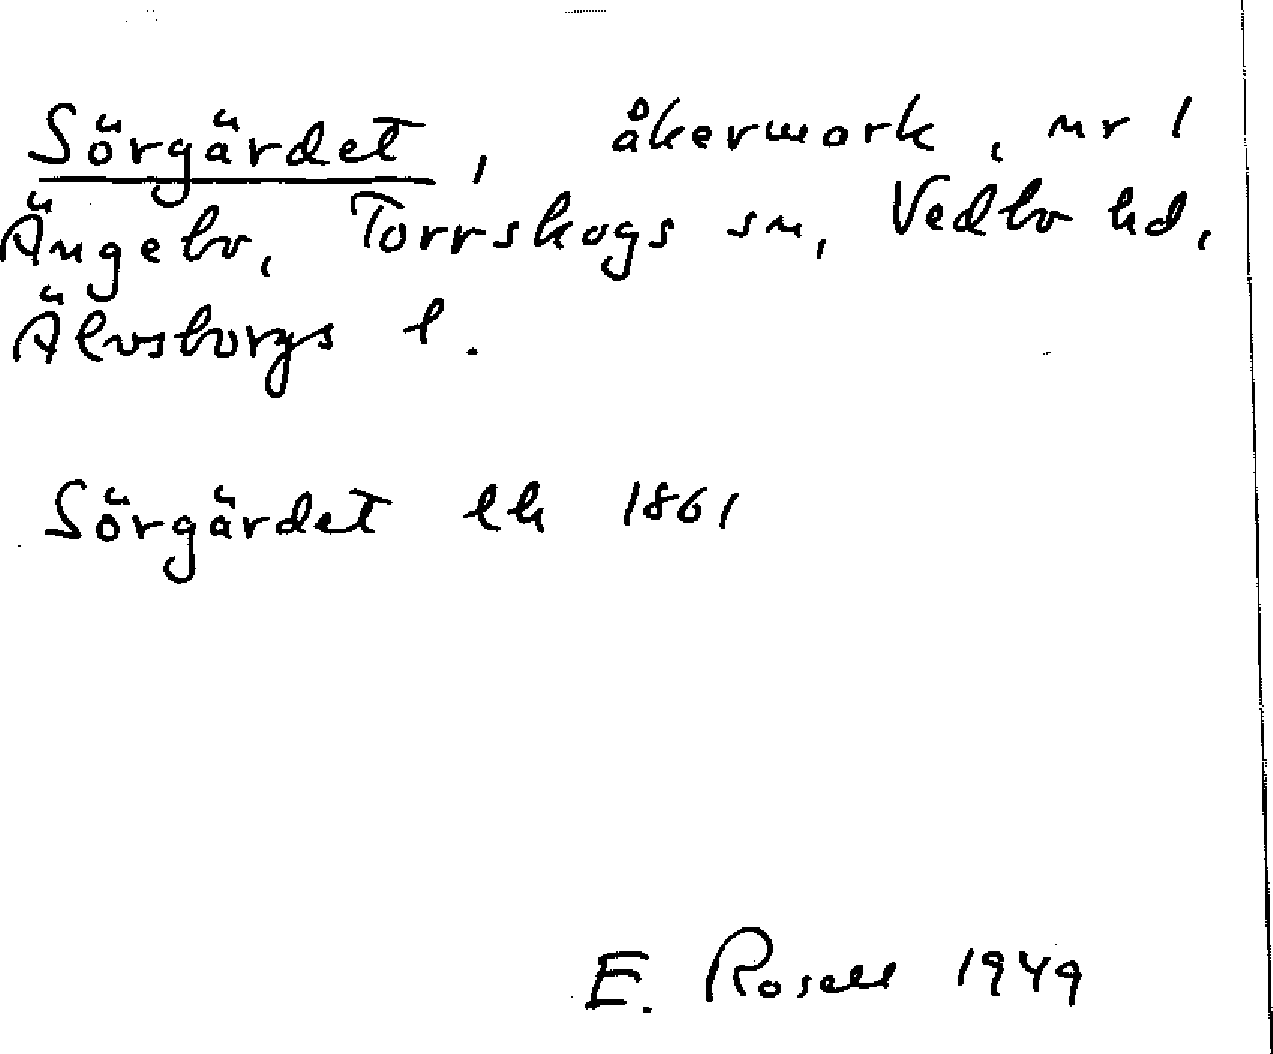 Sörgärdet, åkermark, nr 1
Ängebo, Torrskogs sn, Vedbo hd,
Älvsborgs l.
Sörgärdet lh 1861
E. Rosell 1949